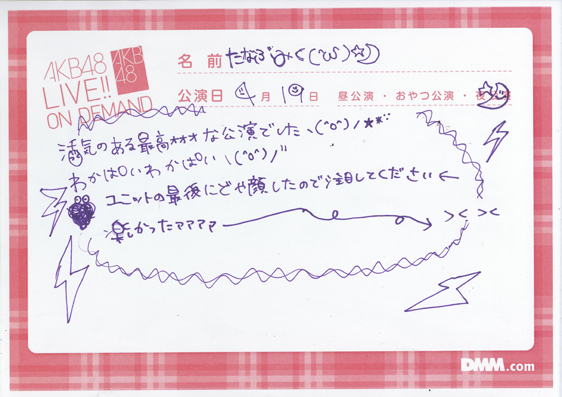 AKB48
LIVE!!
ON DEMAND
AKB
48
名 前 たなべみく(˘ω˘)☆
公演日 4月19日 昼公演・おやつ公演・夜公演
活気のある最高★★★な公演でしたヽ(^o^)ノ★★
わかぽいわかぽいヽ(^o^)ノ
ユニットの最後にどや顔したので注目してください←
楽しかったァァァァ → >< ><
DMM.com